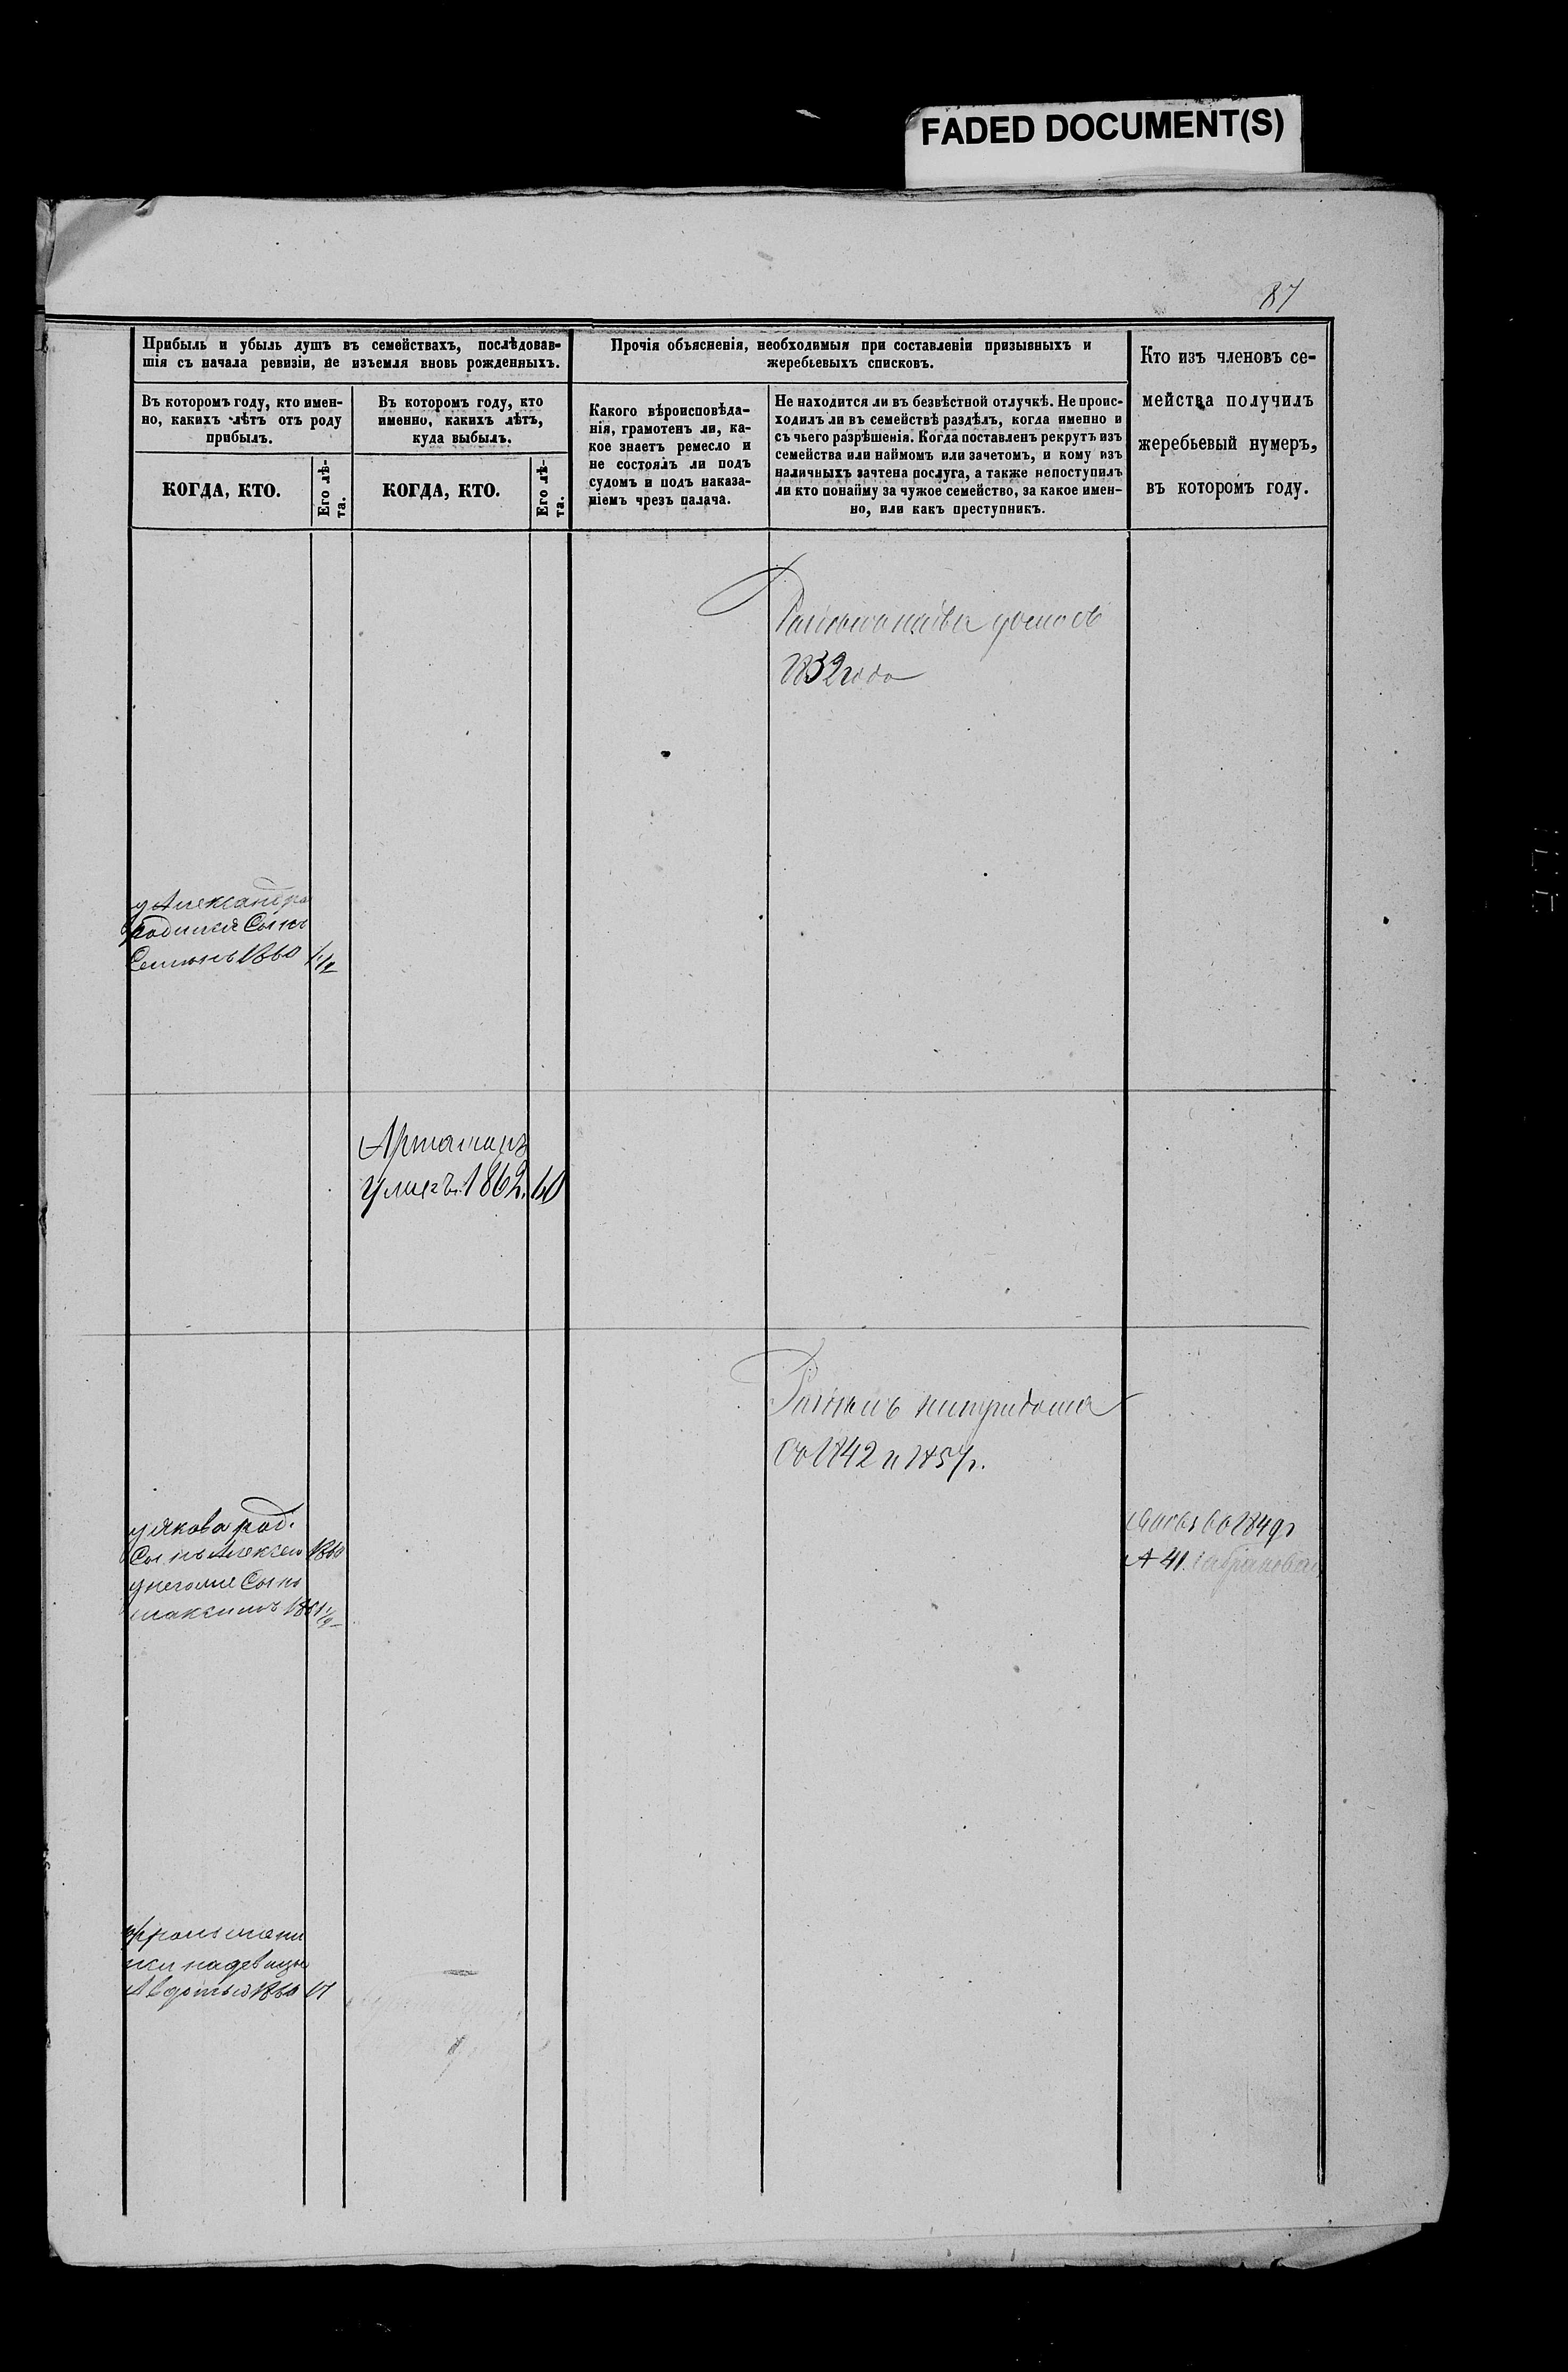 FADED DOCUMENT(S)
87
Прибыль и убыль душъ въ семействахъ, послѣдовав-
шія съ начала ревизіи, не изъемля вновь рожденныхъ.
Въ которомъ году, кто имен-
но, какихъ лѣтъ отъ роду
прибылъ.
КОГДА, КТО.
Его лѣ-
та.
Въ которомъ году, кто
именно, какихъ лѣтъ,
куда выбылъ.
КОГДА, КТО.
Его лѣ-
та.
Прочія объясненія, необходимыя при составленіи призывныхъ и
жеребьевыхъ списковъ.
Какого вѣроисповѣда-
нія, грамотенъ ли, ка-
кое знаетъ ремесло и
не состоялъ ли подъ
судомъ и подъ наказа-
ніемъ чрезъ палача.
Не находится ли въ безвѣстной отлучкѣ. Не проис-
ходилъ ли въ семействѣ раздѣлъ, когда именно и
съ чьего разрѣшенія. Когда поставленъ рекрутъ изъ
семейства или наймомъ или зачетомъ, и кому изъ
наличныхъ зачтена послуга, а также непоступилъ
ли кто понайму за чужое семейство, за какое имен-
но, или какъ преступникъ.
Кто изъ членовъ се-
мейства получилъ
жеребьевый нумеръ,
въ которомъ году.
1832 года
у Александра
родился Сынъ
Семионъ 1860 1/2
умеръ 1862. 60
съ 1842 и 1857 г.
у Якова род.
Сынъ Алексей 1860
у негоже Сынъ
максимъ 1861 1/2
1849 г
№ 41.
на девицы
Авдотьи 1860 17